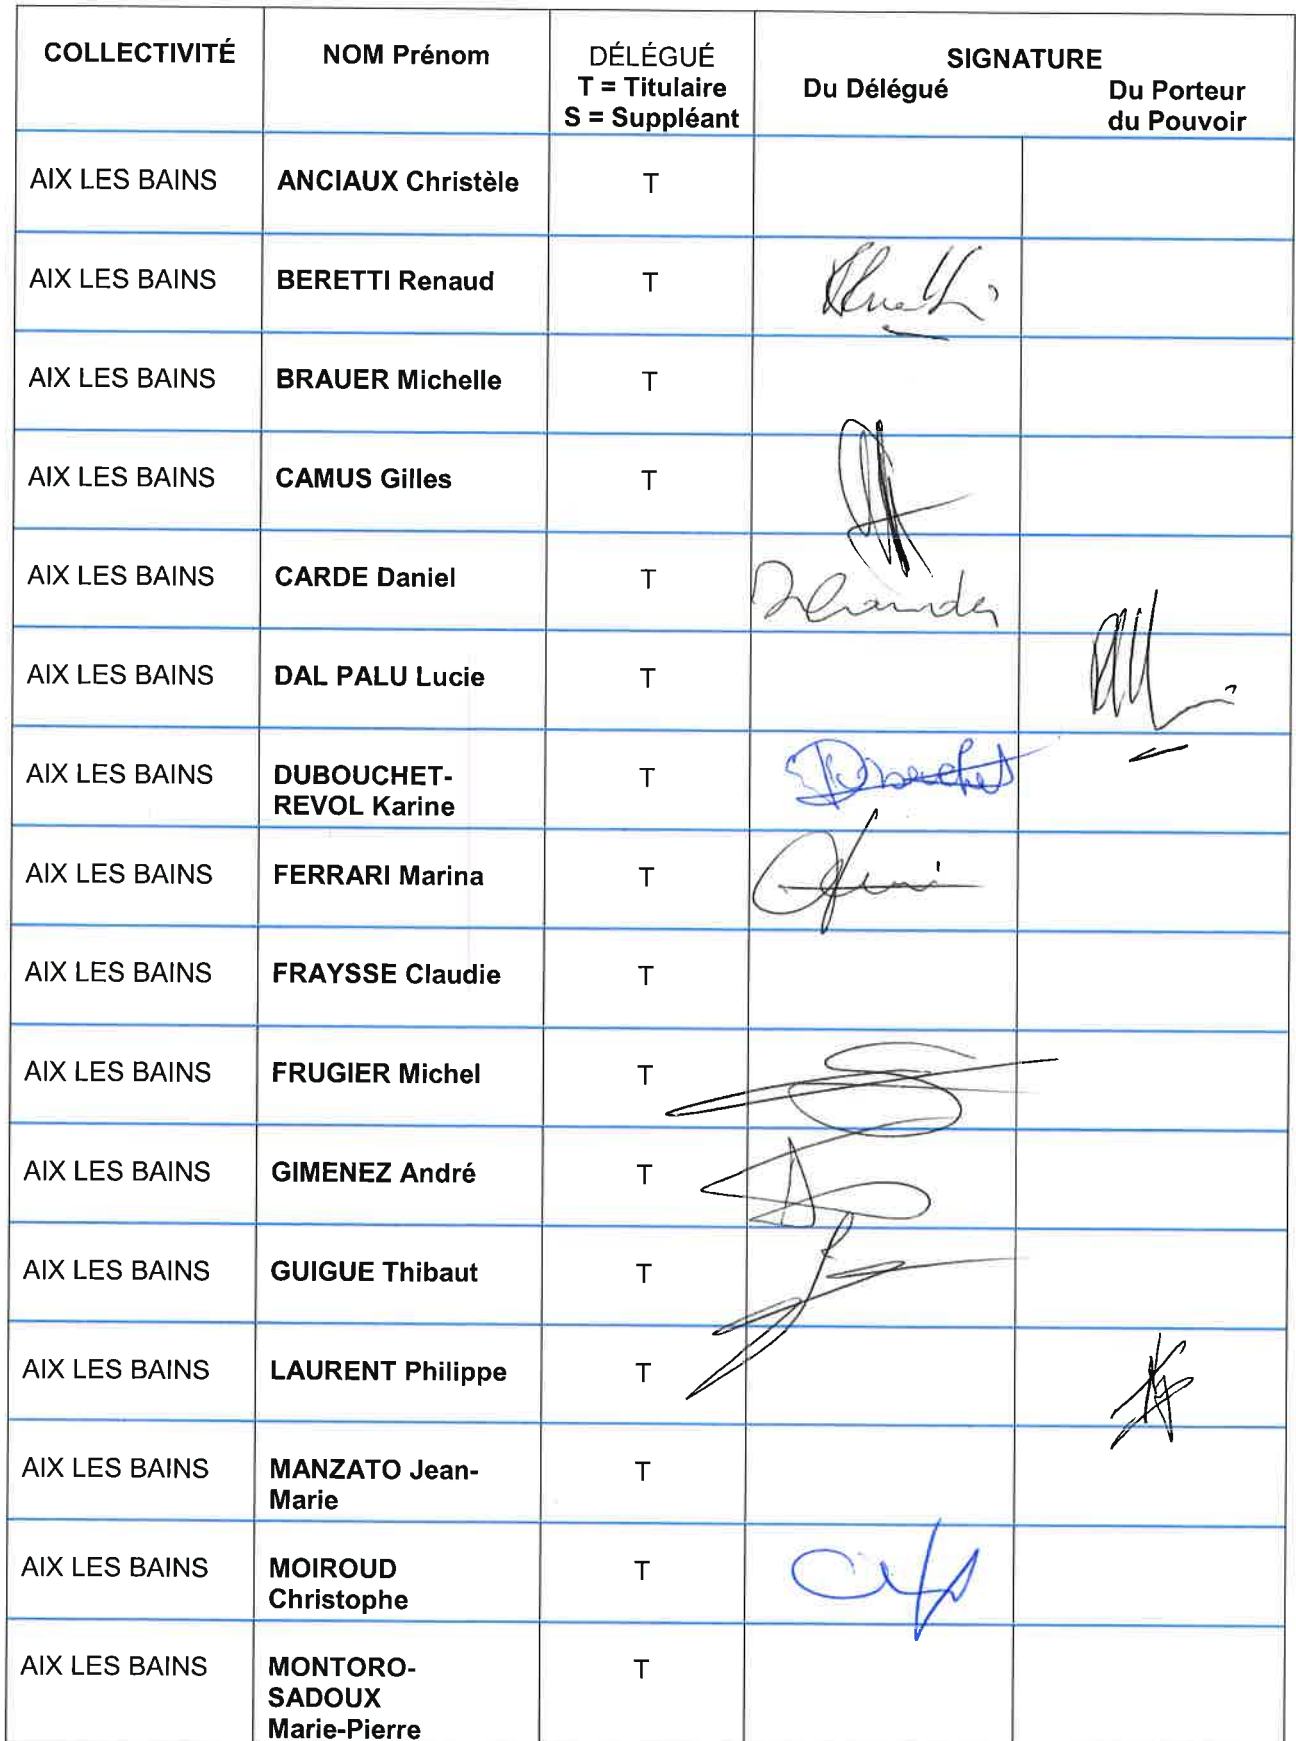 COLLECTIVITÉ
NOM Prénom
DÉLÉGUÉ
T = Titulaire
S = Suppléant
SIGNATURE
Du Délégué
Du Porteur
du Pouvoir
AIX LES BAINS ANCIAUX Christèle T
AIX LES BAINS BERETTI Renaud T
AIX LES BAINS BRAUER Michelle T
AIX LES BAINS CAMUS Gilles T
AIX LES BAINS CARDE Daniel T
AIX LES BAINS DAL PALU Lucie T
AIX LES BAINS DUBOUCHET- T
REVOL Karine
AIX LES BAINS FERRARI Marina T
AIX LES BAINS FRAYSSE Claudie T
AIX LES BAINS FRUGIER Michel T
AIX LES BAINS GIMENEZ André T
AIX LES BAINS GUIGUE Thibaut T
AIX LES BAINS LAURENT Philippe T
AIX LES BAINS MANZATO Jean- T
Marie
AIX LES BAINS MOIROUD T
Christophe
AIX LES BAINS MONTORO- T
SADOUX
Marie-Pierre